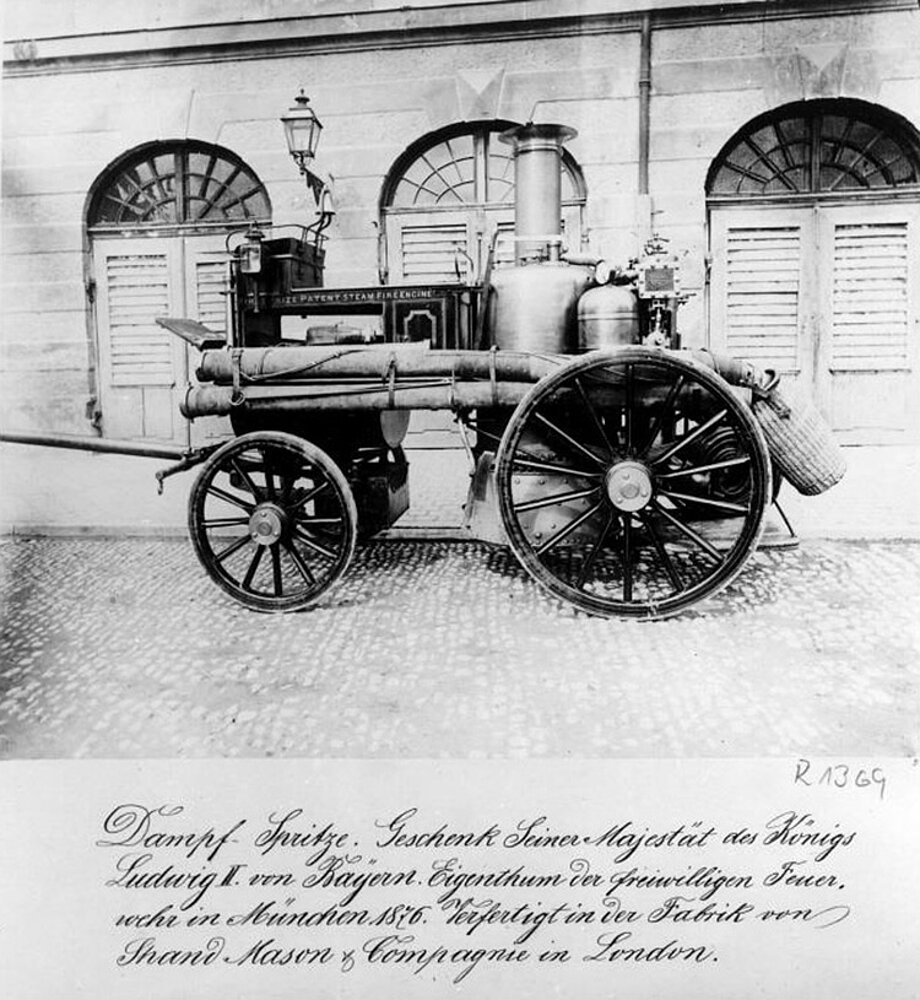 IZE PATENT STEAM FIRE ENGINE
R 1369
Dampf-Spritze. Geschenk Seiner Majestät des Königs
Ludwig II. von Bayern. Eigenthum der freiwilligen Feuer,
wehr in München 1876. Verfertigt in der Fabrik von
Shand Mason & Compagnie in London.